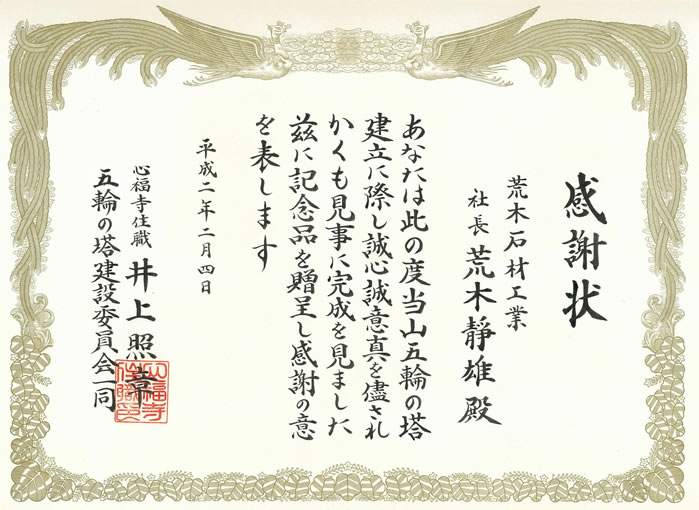 感謝状
荒木石材工業
社長 荒木靜雄 殿
あなたは此の度当山五輪の塔
建立に際し誠心誠意真を儘され
かくも見事に完成を見ました
茲に記念品を贈呈し感謝の意
を表します
平成二年二月四日
心福寺住職 井上照章
五輪の塔建設委員会一同
心福寺
住職印